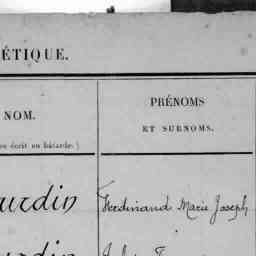 ÉTIQUE.
NOM.
en écrit en bâtarde.)
PRÉNOMS
ET SURNOMS.
urdin
Ferdinand Marie Joseph
urdin